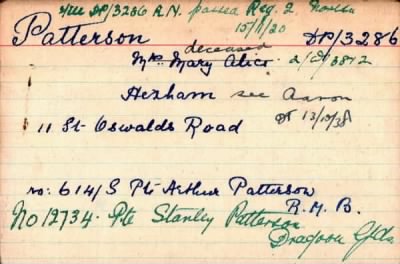 DP/3286 R.N. passed Reg. 2
15/11/20
Patterson DP/3286
deceased
Mrs Mary Alice 2/D/3812
Hexham see Aaron
11 St Oswalds Road 13/10/38
no: 614/S Pte Arthur Patterson
R.M.B.
No 12734. Pte Stanley Patterson
Dragoon Gds.